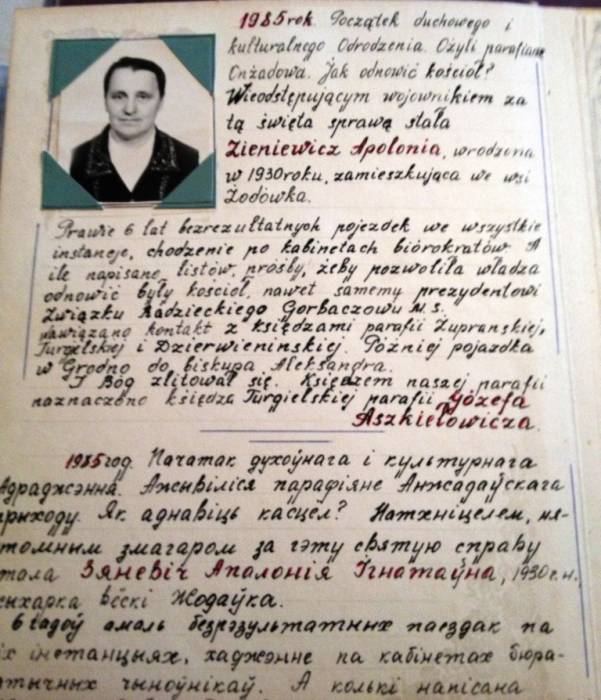 1985 rok. Początek duchowego i
kulturalnego Odrodzenia. Ożyli parafianie
Onżadowa. Jak odnowić kościół?
Nieodstępującym wojownikiem za
tą święta sprawą stała
Zieniewicz Apolonia, wrodzona
w 1930 roku, zamieszkująca we wsi
Żodówka.
Prawie 6 lat bezrezultatnych pojezdek we wszystkie
instancje, chodzenie po kabinetach biórokratów. A
ile napisano listów, prośby, żeby pozwoliła władza
odnowić były kościół, nawet samemu prezydentowi
Związku Radzieckiego Gorbaczowu M.S.
Nawiązano kontakt z księdzami parafii Żupranskiej,
Turgielskiej i Dzierwieninskiej. Później pojazdka
w Grodno do biskupa Aleksandra.
I Bóg zlitował się. Księdzem naszej parafii
naznaczono księdza Turgielskiej parafii Józefa
Aszkiełowicza.
1985 год. Пачатак духоўнага і культурнага
Адраджэння. Ажывіліся парафіяне Анжадаўскага
прыходу. Як аднавіць касцёл? Натхніцелем, ня-
томным змагаром за гэту святую справу
тала Зяневіч Апалонія Ігнатаўна, 1930 г.н.,
ыхарка вёскі Жодаўка.
6 гадоў амаль безрэзультатных паездак па
іх інстанцыях, хаджэнне па кабінетах бюра-
атычных чыноўнікаў. А колькі напісана